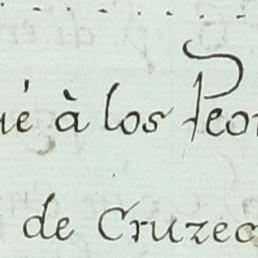 ué à los Peon
de Cruzec